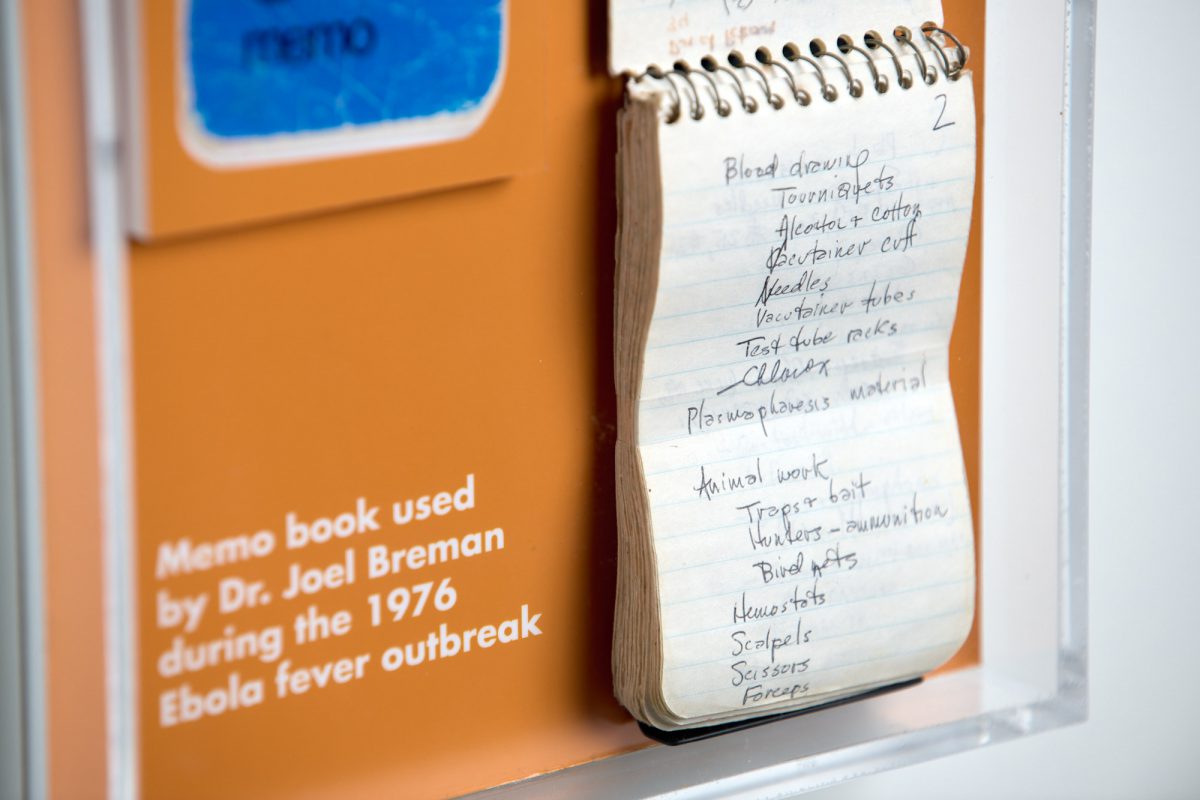 memo
2
Blood drawing
Tourniquets
Alcohol + cotton
Vacutainer cuff
Needles
Vacutainer tubes
Test tube racks
Chlorox
Plasmapheresis material
Animal work
Traps + bait
Hunters - ammunition
Bird nets
Hemostats
Scalpels
Scissors
Forceps
Memo book used
by Dr. Joel Breman
during the 1976
Ebola fever outbreak